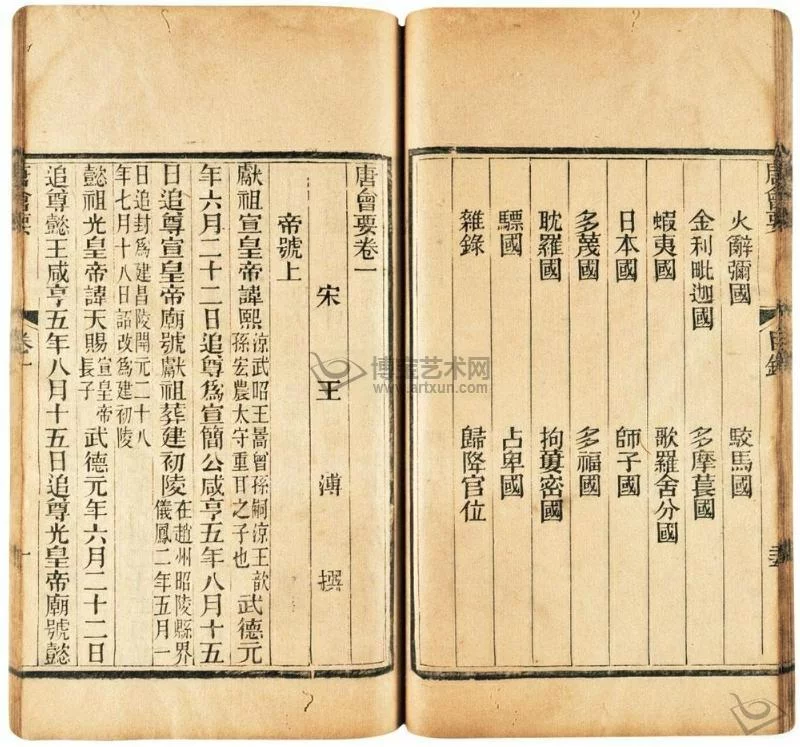 唐會要 目錄
火辭彌國 駮馬國
金利毗迦國 多摩萇國
蝦夷國 歌羅舍分國
日本國 師子國
多蔑國 多福國
耽羅國 拘蔞密國
驃國 占卑國
雜錄 歸降官位
唐會要卷一
宋 王 溥 撰
帝號上
獻祖宣皇帝諱熙涼武昭王暠曾孫嗣涼王歆孫宏農太守重耳之子也武德元
年六月二十二日追尊爲宣簡公咸亨五年八月十五
日追尊宣皇帝廟號獻祖葬建初陵在趙州昭陵縣界儀鳳二年五月一
日追封爲建昌陵開元二十八年七月十八日詔改爲建初陵
懿祖光皇帝諱天賜宣皇帝長子武德元年六月二十二日
追尊懿王咸亨五年八月十五日追尊光皇帝廟號懿
唐會要 卷一 一
博宝艺术网
www.artxun.com